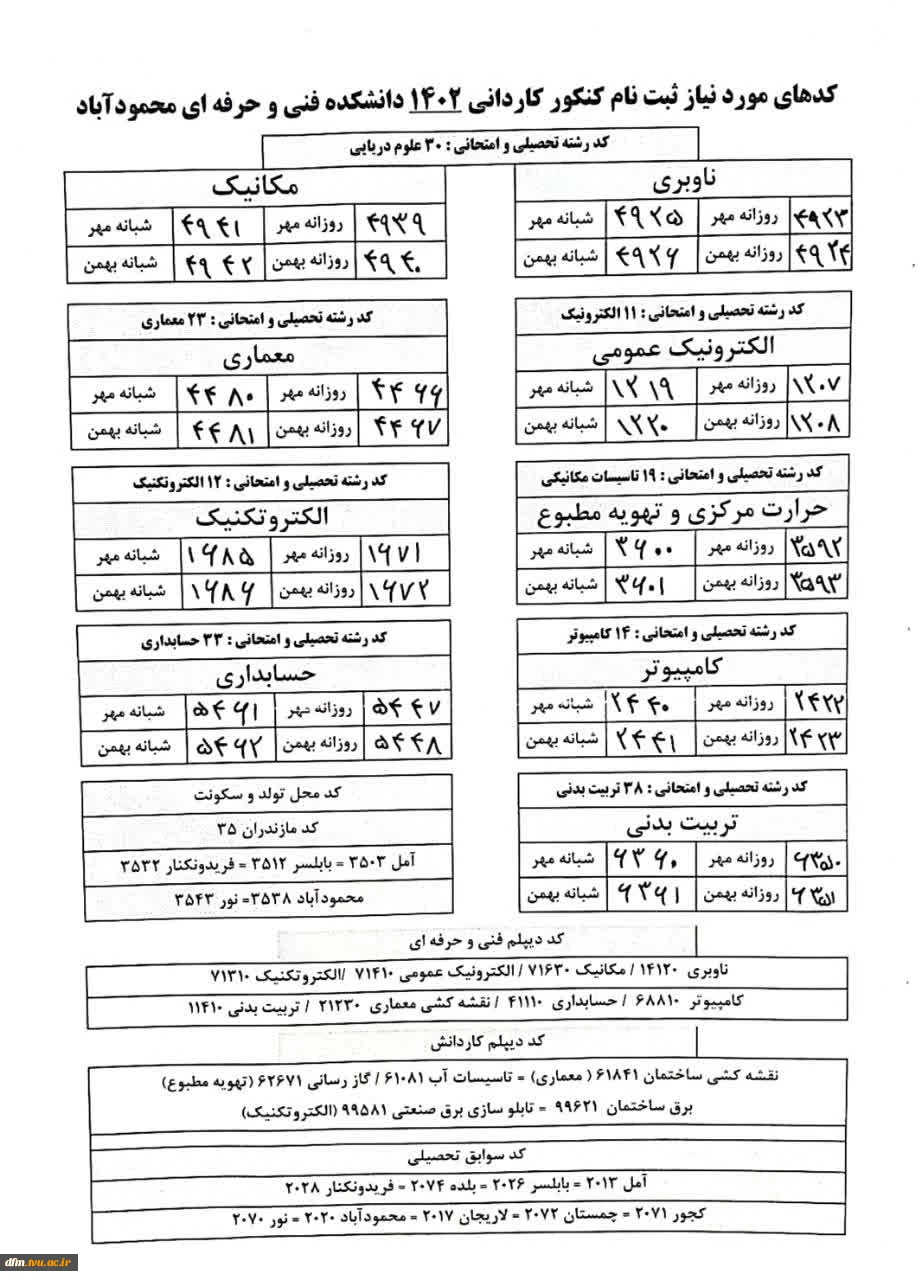 کدهای مورد نیاز ثبت نام کنکور کاردانی ۱۴۰۲ دانشکده فنی و حرفه ای محمودآباد
کد رشته تحصیلی و امتحانی : ۳۰ علوم دریایی
ناوبری
۴۹۲۳ روزانه مهر ۴۹۲۵ شبانه مهر
۴۹۲۴ روزانه بهمن ۴۹۲۶ شبانه بهمن
مکانیک
۴۹۳۹ روزانه مهر ۴۹۴۱ شبانه مهر
۴۹۴۰ روزانه بهمن ۴۹۴۲ شبانه بهمن
کد رشته تحصیلی و امتحانی : ۱۱ الکترونیک
الکترونیک عمومی
۱۲۰۷ روزانه مهر ۱۲۱۹ شبانه مهر
۱۲۰۸ روزانه بهمن ۱۲۲۰ شبانه بهمن
کد رشته تحصیلی و امتحانی : ۲۳ معماری
معماری
۴۴۶۶ روزانه مهر ۴۴۸۰ شبانه مهر
۴۴۶۷ روزانه بهمن ۴۴۸۱ شبانه بهمن
کد رشته تحصیلی و امتحانی : ۱۹ تاسیسات مکانیکی
حرارت مرکزی و تهویه مطبوع
۳۵۹۲ روزانه مهر ۳۶۰۰ شبانه مهر
۳۵۹۳ روزانه بهمن ۳۶۰۱ شبانه بهمن
کد رشته تحصیلی و امتحانی : ۱۲ الکتروتکنیک
الکتروتکنیک
۱۶۷۱ روزانه مهر ۱۶۸۵ شبانه مهر
۱۶۷۲ روزانه بهمن ۱۶۸۶ شبانه بهمن
کد رشته تحصیلی و امتحانی : ۱۴ کامپیوتر
کامپیوتر
۲۴۲۲ روزانه مهر ۲۴۴۰ شبانه مهر
۲۴۲۳ روزانه بهمن ۲۴۴۱ شبانه بهمن
کد رشته تحصیلی و امتحانی : ۳۳ حسابداری
حسابداری
۵۴۴۷ روزانه مهر ۵۴۶۱ شبانه مهر
۵۴۴۸ روزانه بهمن ۵۴۶۲ شبانه بهمن
کد رشته تحصیلی و امتحانی : ۳۸ تربیت بدنی
تربیت بدنی
۶۳۵۰ روزانه مهر ۶۳۶۰ شبانه مهر
۶۳۵۱ روزانه بهمن ۶۳۶۱ شبانه بهمن
کد محل تولد و سکونت
کد مازندران ۳۵
آمل ۳۵۰۳ = بابلسر ۳۵۱۲ = فریدونکنار ۳۵۳۲
محمودآباد ۳۵۳۸= نور ۳۵۴۳
کد دیپلم فنی و حرفه ای
ناوبری ۱۴۱۲۰ / مکانیک ۷۱۶۳۰ / الکترونیک عمومی ۷۱۴۱۰ /الکتروتکنیک ۷۱۳۱۰
کامپیوتر ۶۸۸۱۰ / حسابداری ۴۱۱۱۰ / نقشه کشی معماری ۲۱۲۳۰ / تربیت بدنی ۱۱۴۱۰
کد دیپلم کاردانش
نقشه کشی ساختمان ۶۱۸۴۱ ( معماری) = تاسیسات آب ۶۱۰۸۱ / گاز رسانی ۶۲۶۷۱ (تهویه مطبوع)
برق ساختمان ۹۹۶۲۱ = تابلو سازی برق صنعتی ۹۹۵۸۱ (الکتروتکنیک)
کد سوابق تحصیلی
آمل ۲۰۱۳ = بابلسر ۲۰۲۶ = بلده ۲۰۷۴ = فریدونکنار ۲۰۲۸
کجور ۲۰۷۱ = چمستان ۲۰۷۲ = لاریجان ۲۰۱۷ = محمودآباد ۲۰۲۰ = نور ۲۰۷۰
dfm.tvu.ac.ir